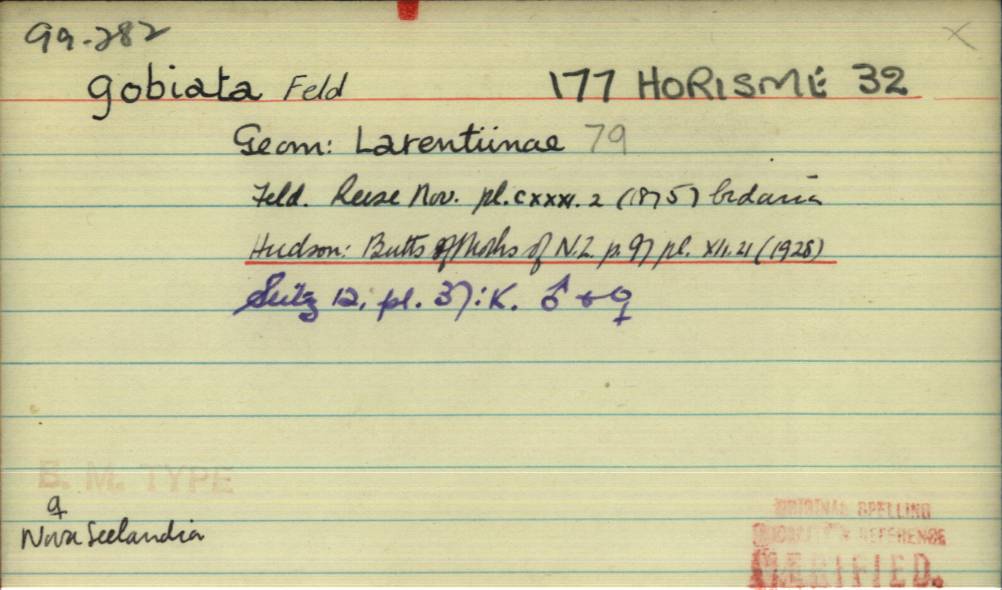 99-282
X
gobiata Feld 177 HORISME 32
Geom: Larentiinae 79
Feld. Reise Nov. pl. cxxxi. 2 (1875)
Hudson: Butts & Moths of N.Z. p. 97 pl. xii. 21 (1928)
Seitz 12, pl. 37: K. ♂ + ♀
B. M. TYPE
♀
Nova Seelandia
ORIGINAL SPELLING
LOCALITY & REFERENCE
VERIFIED.